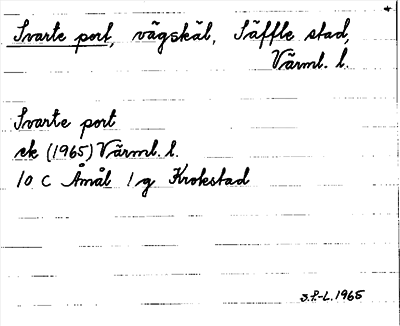 Svarte port, vägskäl, Säffle stad,
Värml. l.
Svarte port
ek (1965) Värml. l.
10 C Åmål 1 g Krokstad
S.F.-L. 1965